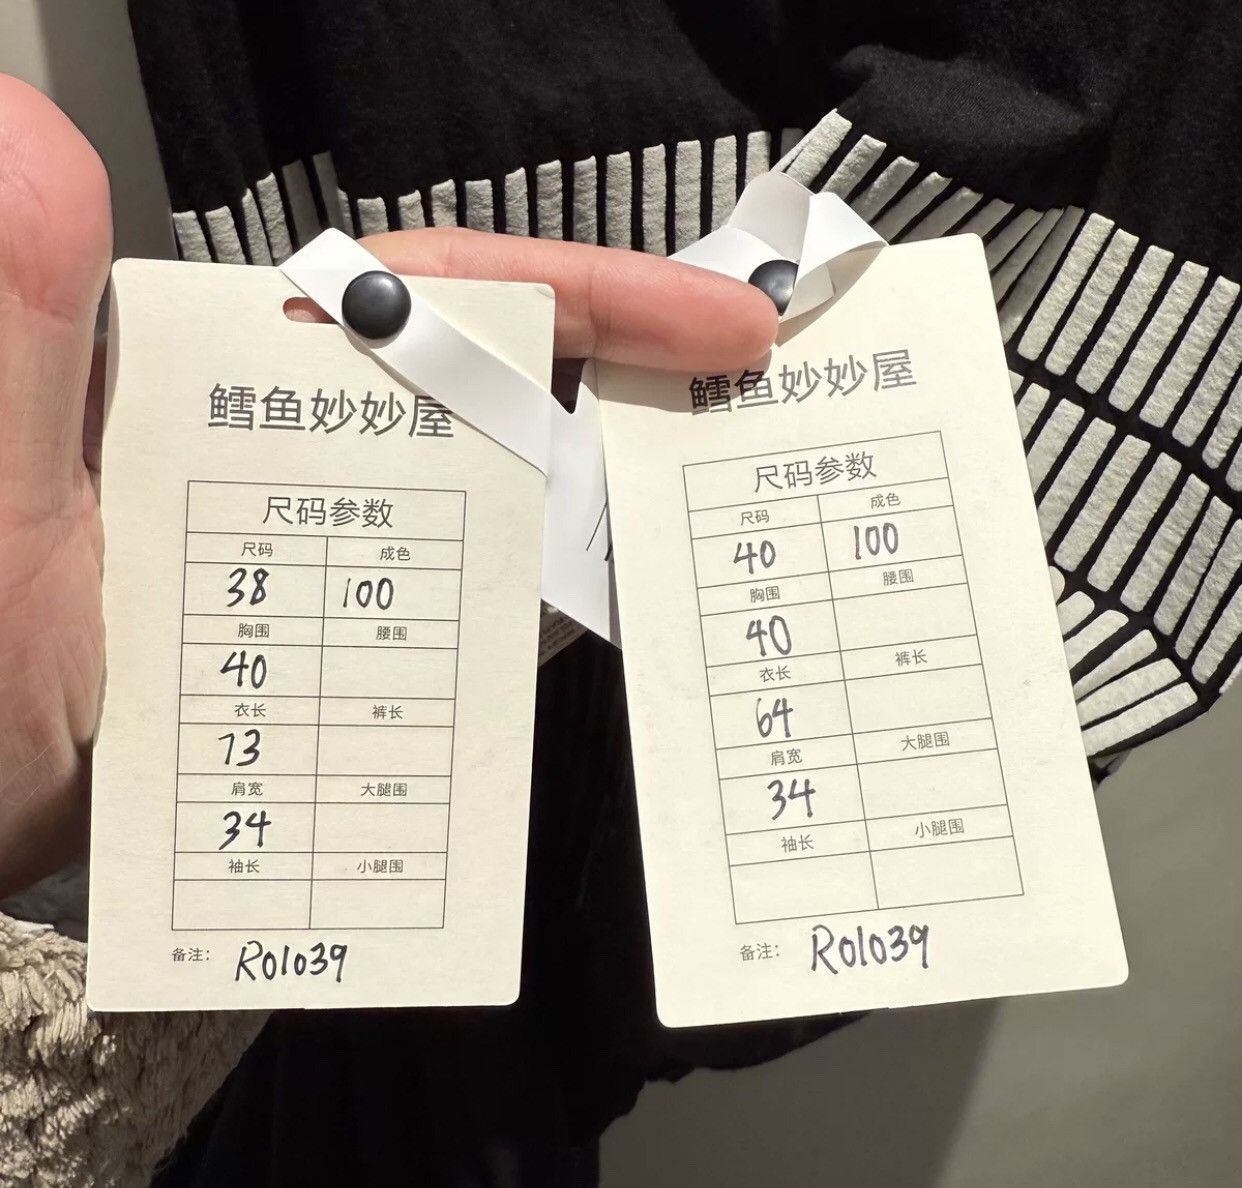 鳕鱼妙妙屋
尺码参数
尺码 成色
38 100
胸围 腰围
40
衣长 裤长
73
肩宽 大腿围
34
袖长 小腿围
备注: R01039
鳕鱼妙妙屋
尺码参数
尺码 成色
40 100
胸围 腰围
40
衣长 裤长
64
肩宽 大腿围
34
袖长 小腿围
备注: R01039